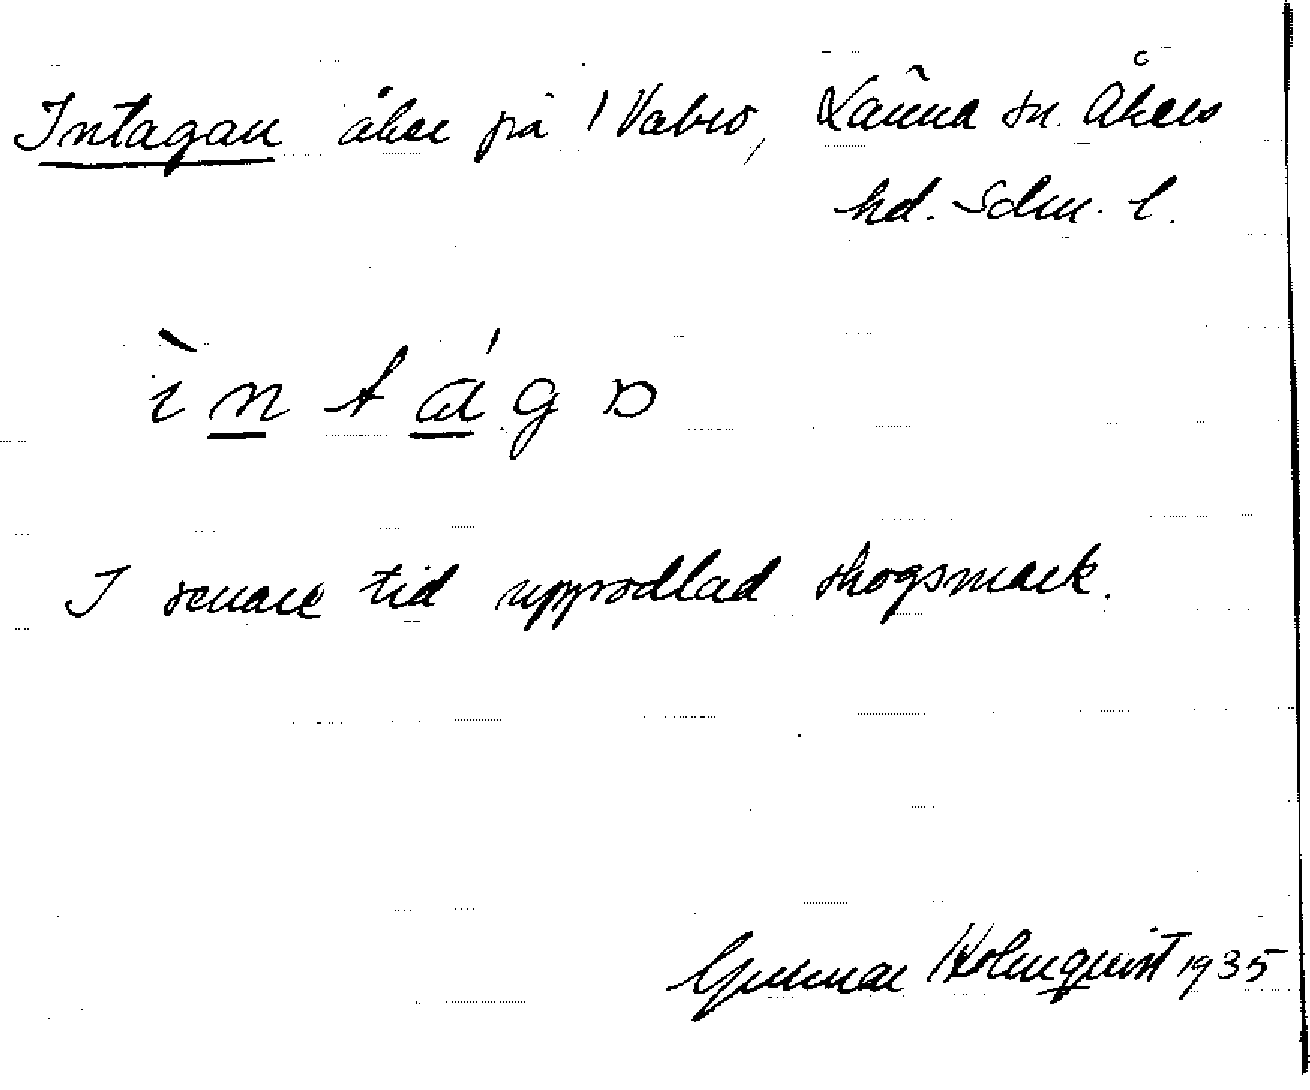 Intagan åker på Valsö, Länna sn. Åkers
hd. Sdm. l.
ìntágo
I senare tid uppodlad skogsmark.
Gunnar Holmquist 1935